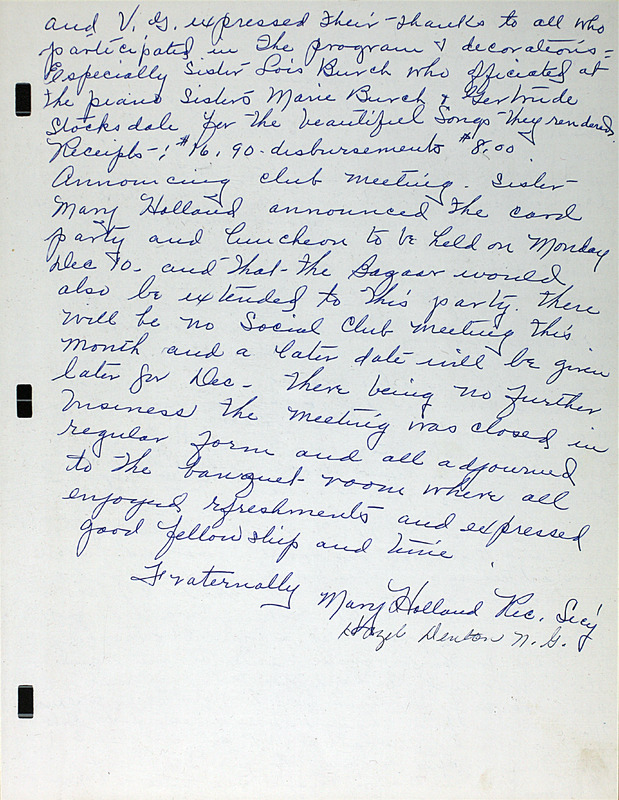 and V. G. expressed their thanks to all who
participated in the program & decorations =
Especially Sister Lois Burch who officiated at
the piano Sisters Marie Burch & Gertrude
Stocksdale for the beautiful Songs they rendered.
Receipts -: $16.90 - disbursements $8.00
Announcing club meeting. Sister
Mary Holland announced the card
party and luncheon to be held on Monday
Dec 10. and that the Bagaar would
also be extended to this party. there
will be no Social Club meeting this
month and a later date will be given
later for Dec - there being no further
business the meeting was closed in
regular form and all adjourned
to the banquet room where all
enjoyed refreshments and expressed
good fellowship and time
Fraternally
Mary Holland Rec. Sec'y
Hazel Denton N. G.